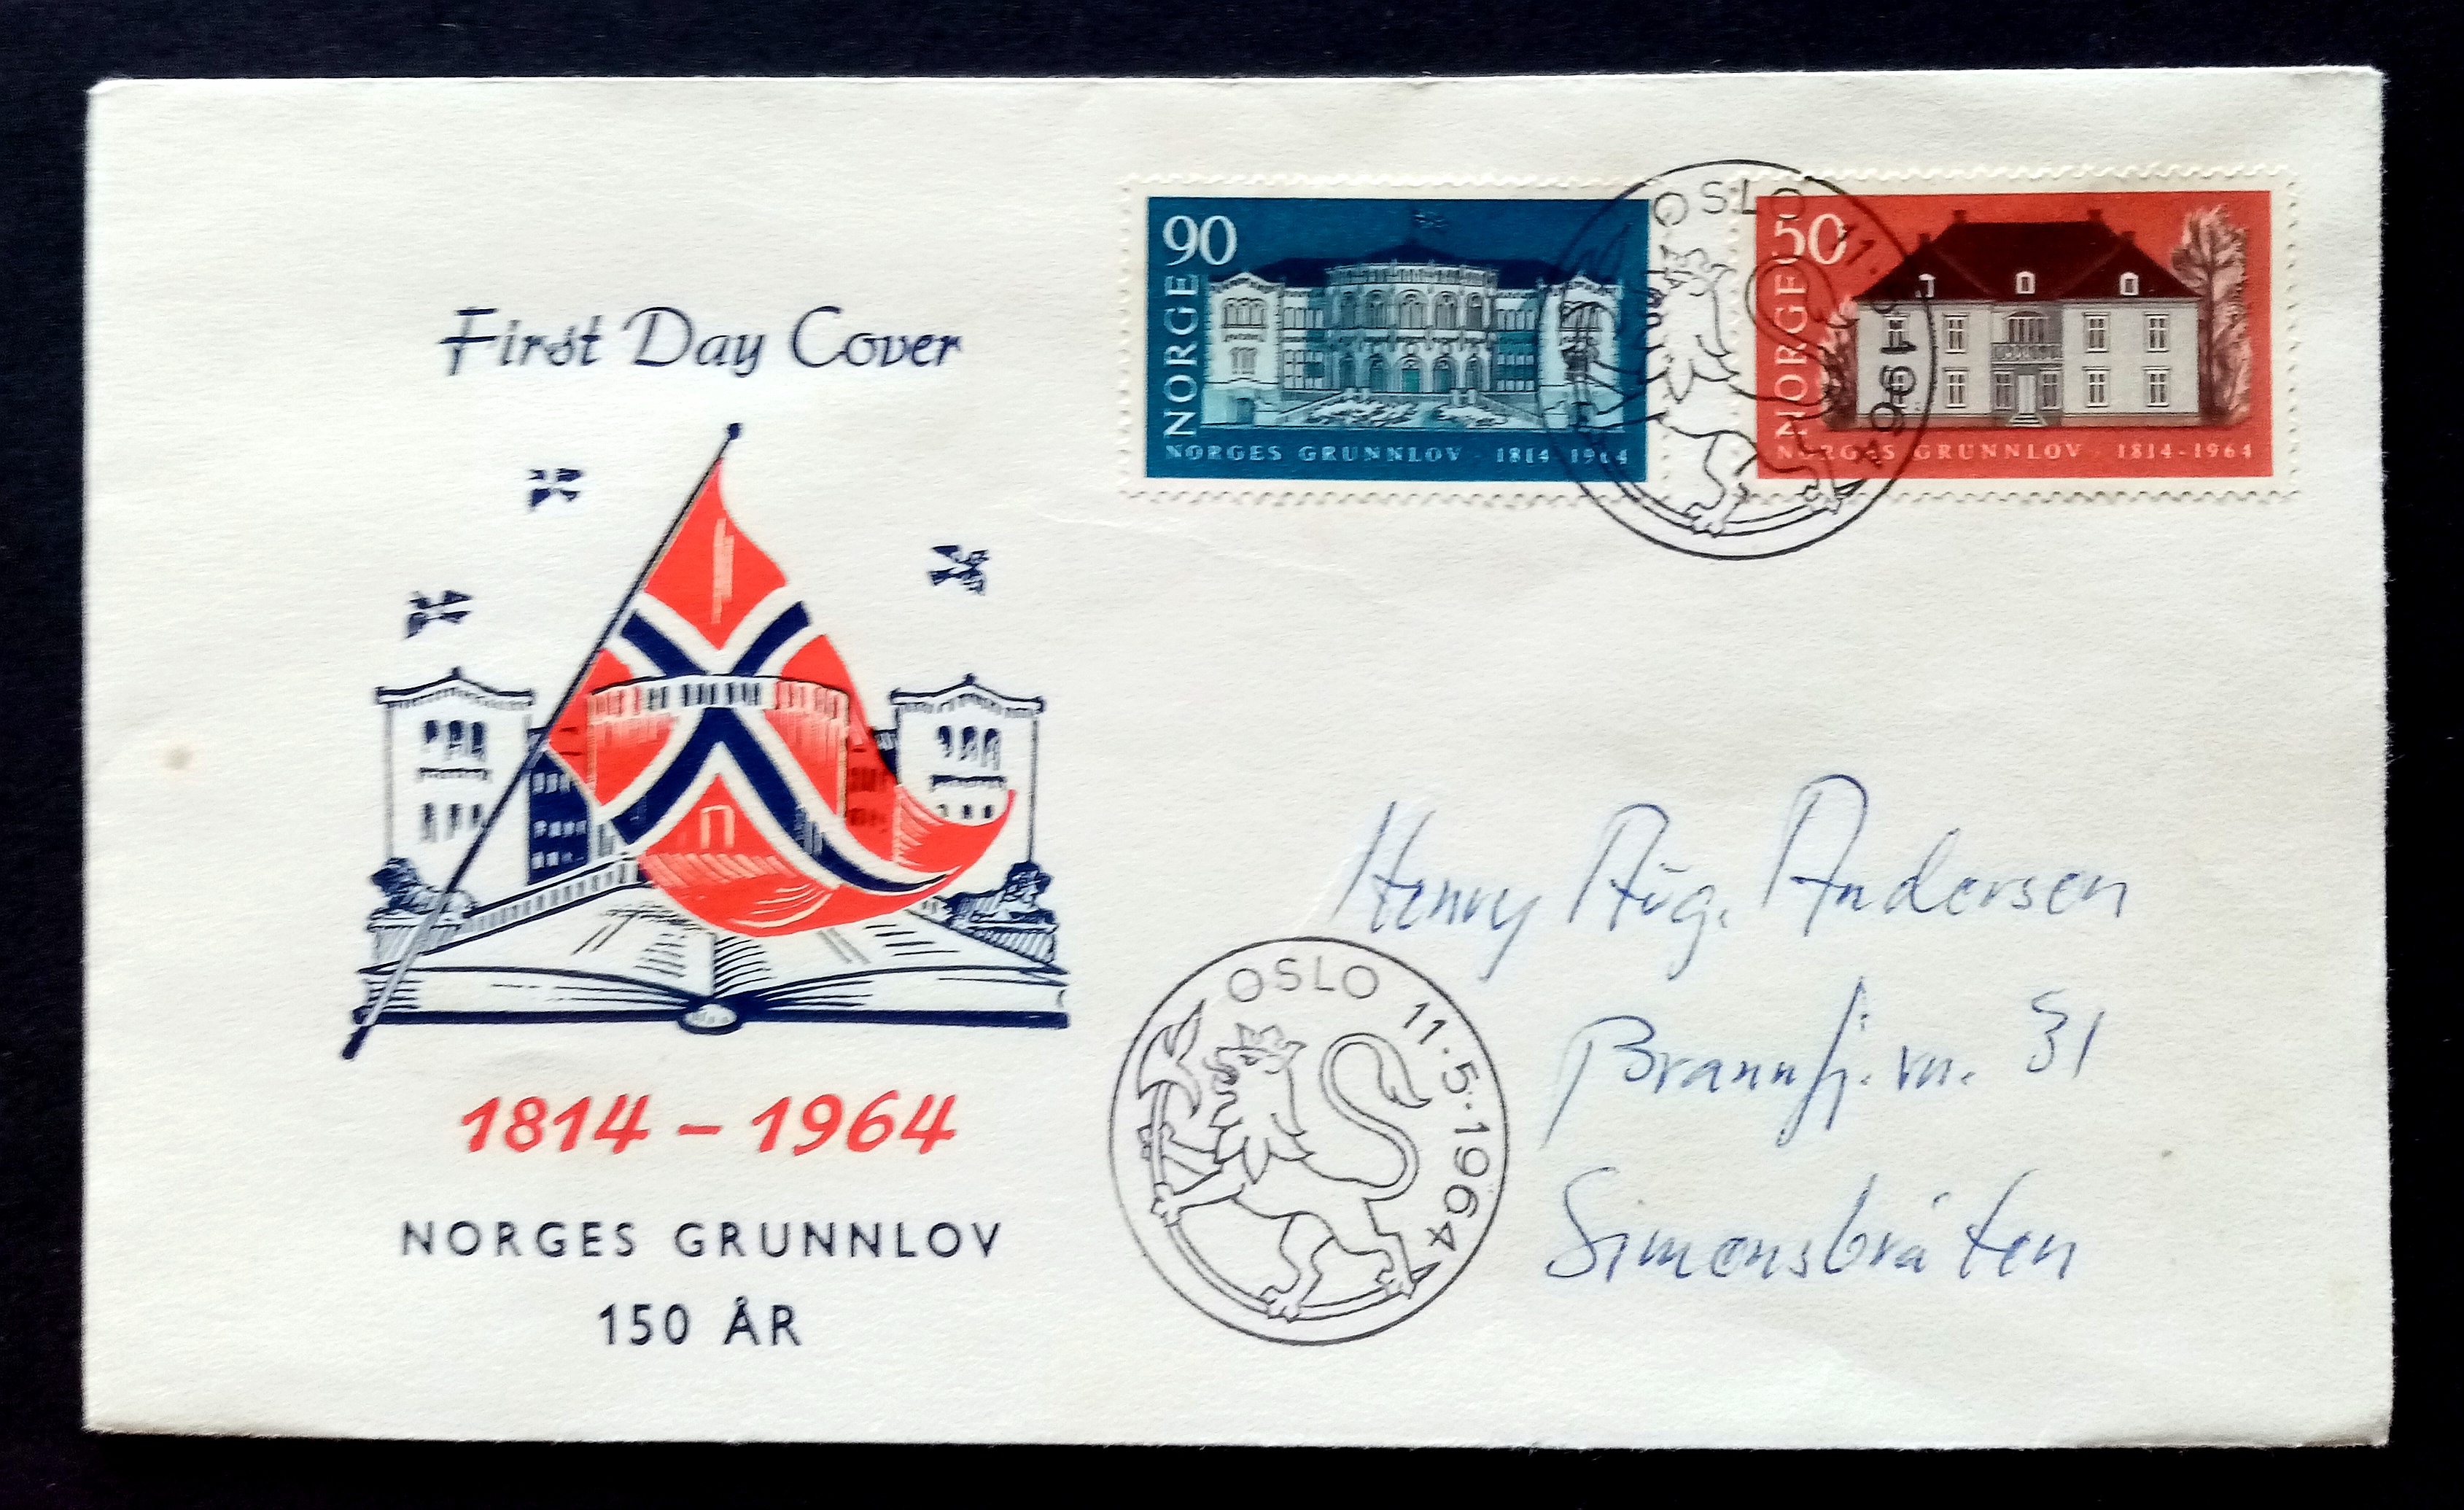 First Day Cover
1814 – 1964
NORGES GRUNNLOV
150 ÅR
90
NORGE
NORGES GRUNNLOV · 1814-1964
50
NORGE
NORGES GRUNNLOV · 1814-1964
OSLO 11.5.1964
Henry Aug. Andersen
Brannfj. vn. 31
Simensbråten
OSLO 11.5.1964